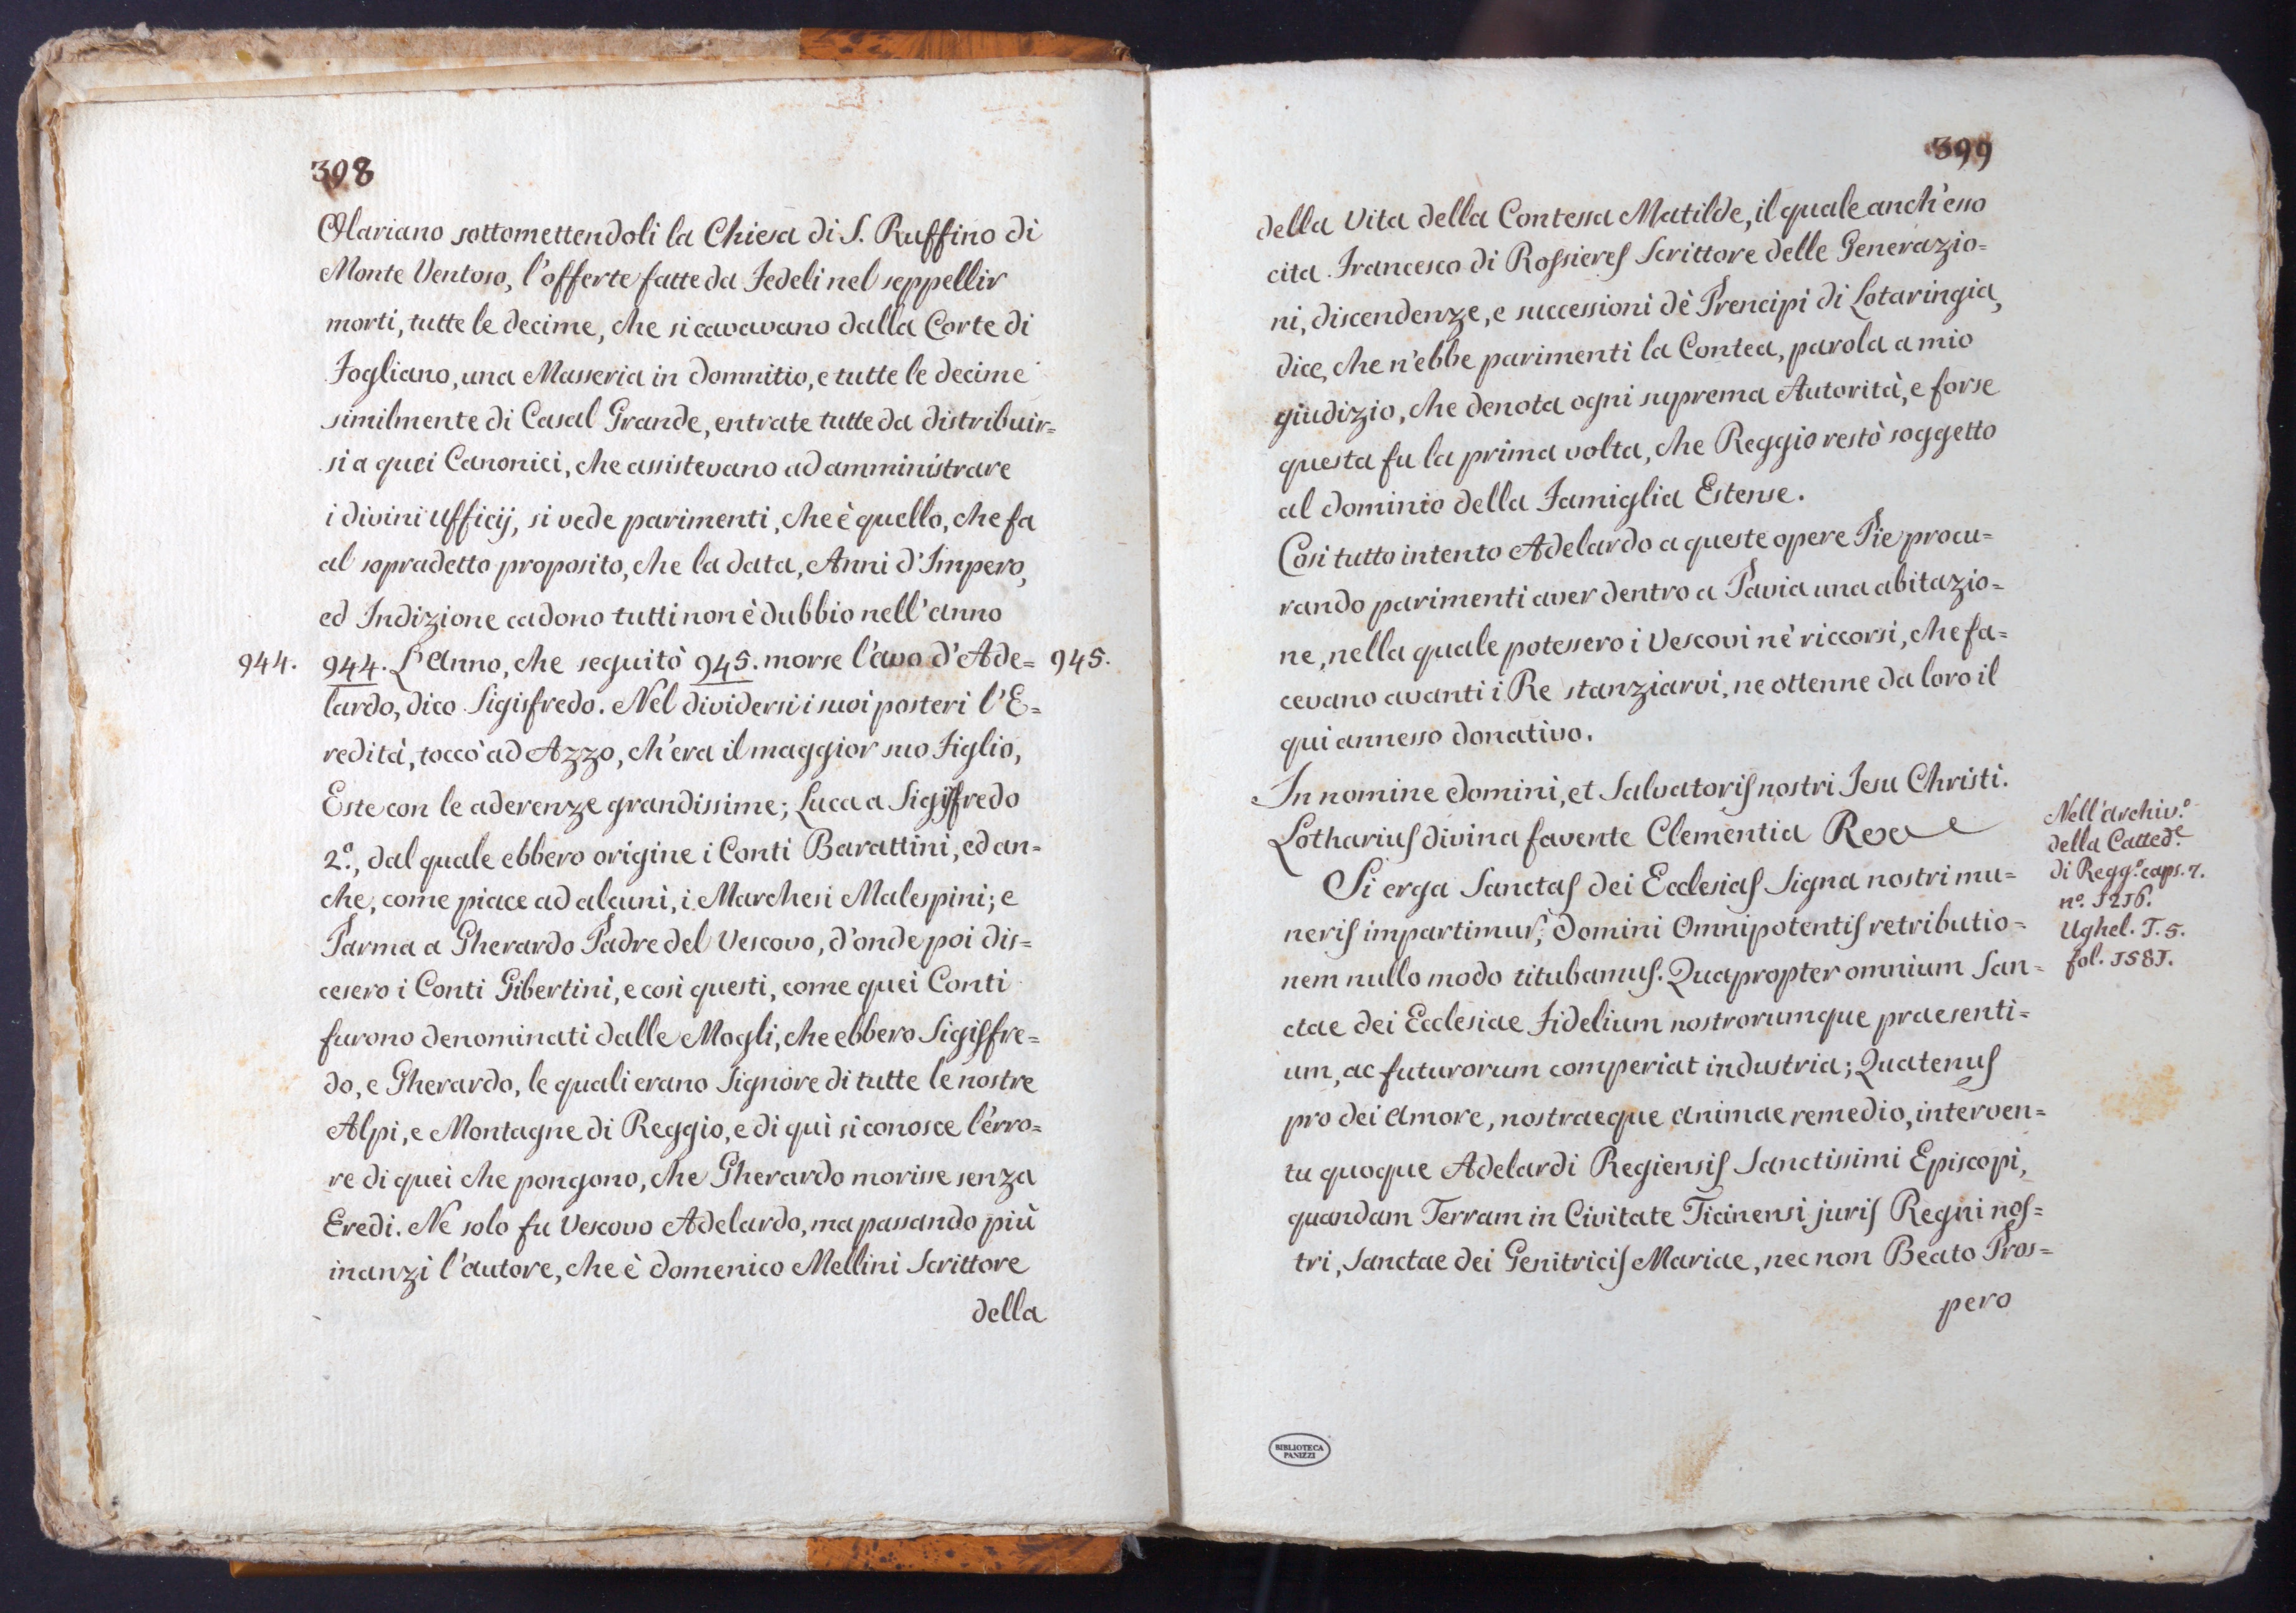 398
Olariano sottomettendoli la Chiesa di S. Ruffino di
Monte Ventoso, l'offerte fatte da Fedeli nel seppellir
morti, tutte le decime, che si cavavano dalla Corte di
Fogliano, una Masseria in domnitio, e tutte le decime
similmente di Casal Grande, entrate tutte da distribuir=
si a quei Canonici, che assistevano ad amministrare
i divini Ufficij, si vede parimenti, che è quello, che fa
al sopradetto proposito, che la data, Anni d'Impero,
ed Indizione cadono tutti non è dubbio nell'anno
944. 944. L'Anno, che seguitò 945. morse l'avo d'Ade= 945.
lardo, dico Sigisfredo. Nel dividersi i suoi posteri l'E=
redità, toccò ad Azzo, ch'era il maggior suo Figlio,
Este con le aderenze grandissime; Luca a Sigisfredo
2.º, dal quale ebbero origine i Conti Barattini, ed an=
che, come piace ad alcuni, i Marchesi Malespini; e
Parma a Gherardo Padre del Vescovo, d'onde poi dis=
cesero i Conti Gibertini, e così questi, come quei Conti
furono denominati dalle Mogli, che ebbero Sigisfre=
do, e Gherardo, le quali erano Signore di tutte le nostre
Alpi, e Montagne di Reggio, e di qui si conosce l'erro=
re di quei che pongono, che Gherardo morisse senza
Eredi. Ne solo fu Vescovo Adelardo, ma passando più
inanzi l'autore, che è Domenico Mellini Scrittore
della
399
della Vita della Contessa Matilde, il quale anch'esso
cita Francesco di Rossieres Scrittore delle Generazio=
ni, discendenze, e successioni dè Prencipi di Lotaringia,
dice, che n'ebbe parimenti la Contea, parola a mio
giudizio, che denota ogni suprema Autorità, e forse
questa fu la prima volta, che Reggio restò soggetto
al dominio della Famiglia Estense.
Così tutto intento Adelardo a queste opere Pie procu=
rando parimenti aver dentro a Pavia una abitazio=
ne, nella quale potessero i Vescovi nè riccorsi, che fa=
cevano avanti i Re stanziarvi, ne ottenne da loro il
qui annesso donativo.
In nomine Domini, et Salvatoris nostri Jesu Christi.
Lotharius divina favente Clementia Rex
Si erga Sanctas Dei Ecclesias Signa nostri mu=
neris impartimur, Domini Omnipotentis retributio=
nem nullo modo titubamus. Quapropter omnium San=
ctae Dei Ecclesiae Fidelium nostrorumque praesenti=
um, ac futurorum comperiat industria; Quatenus
pro Dei Amore, nostraeque Animae remedio, interven=
tu quoque Adelardi Regiensis Sanctissimi Episcopi,
quandam Terram in Civitate Ticinensi juris Regni nos=
tri, Sanctae Dei Genitricis Mariae, nec non Beato Pros=
pero
Nell'archiv.º
della Catted.e
di Regg.º caps. 7.
nº. 1216.
Ughel. T. 5.
fol. 1581.
BIBLIOTECA
PANIZZI